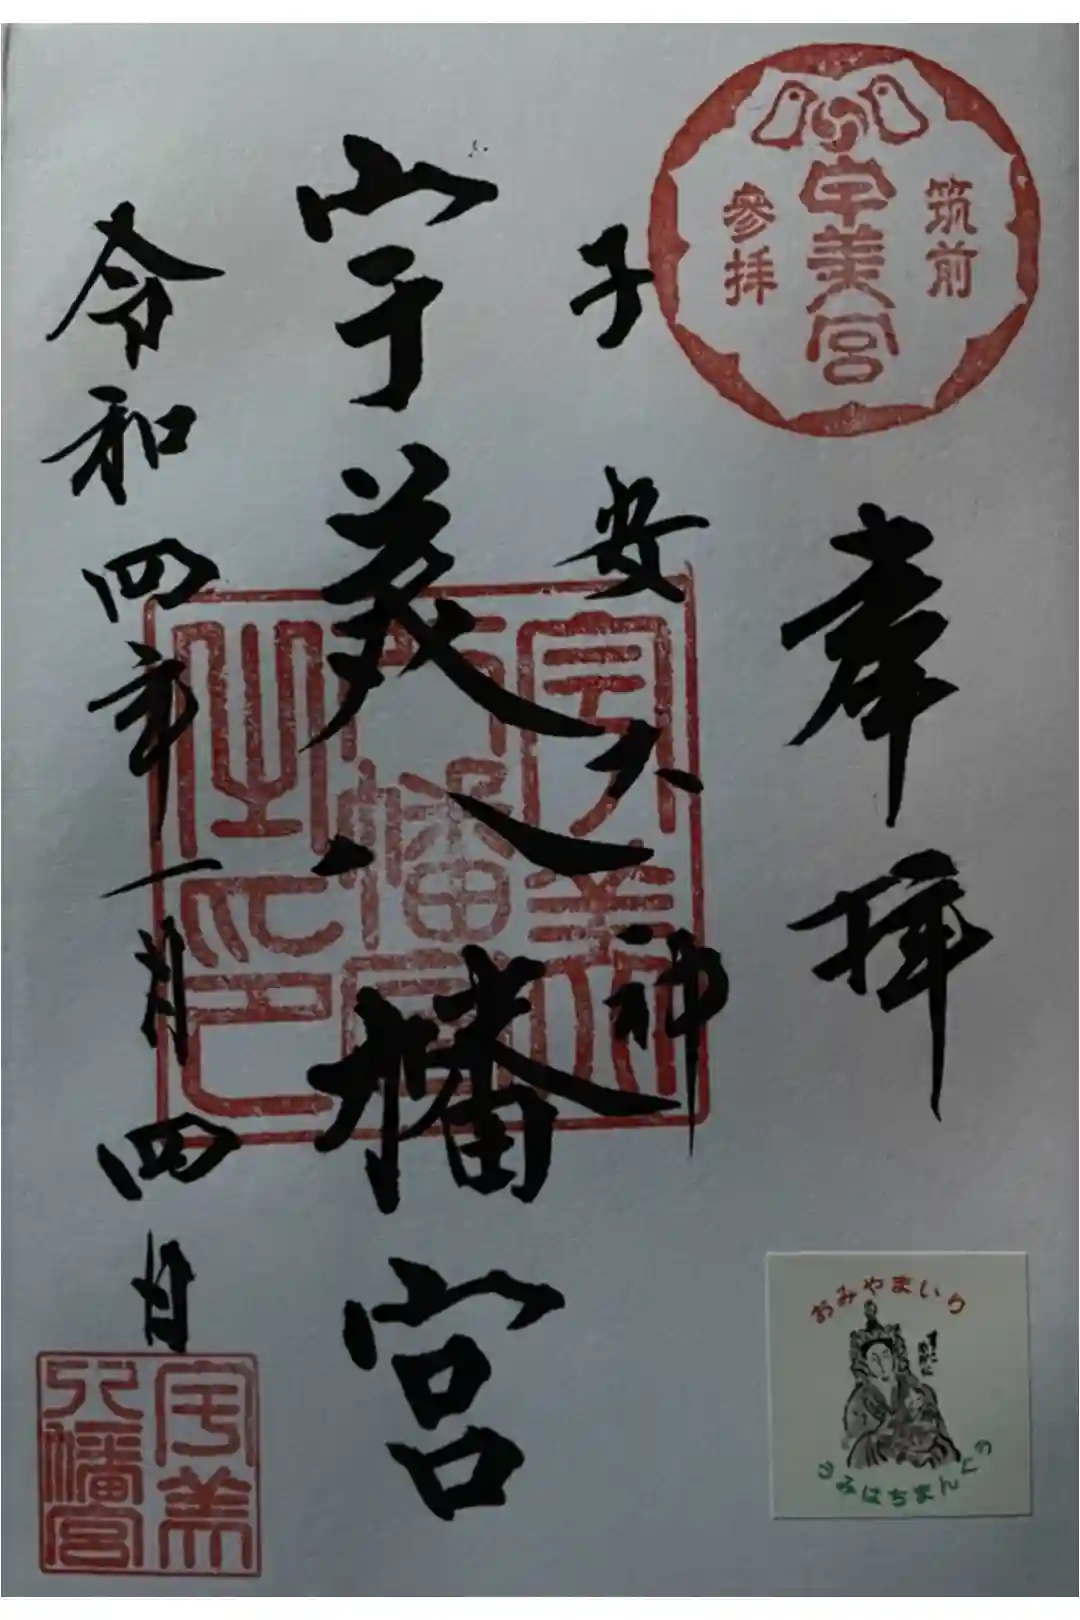 筑前
宇美宮
參拝
奉拝
子安大神
宇美八幡宮
令和四年一月四日
宇美八幡宮之印
宇美
八幡宮
おみやまいり
うみはちまんぐう